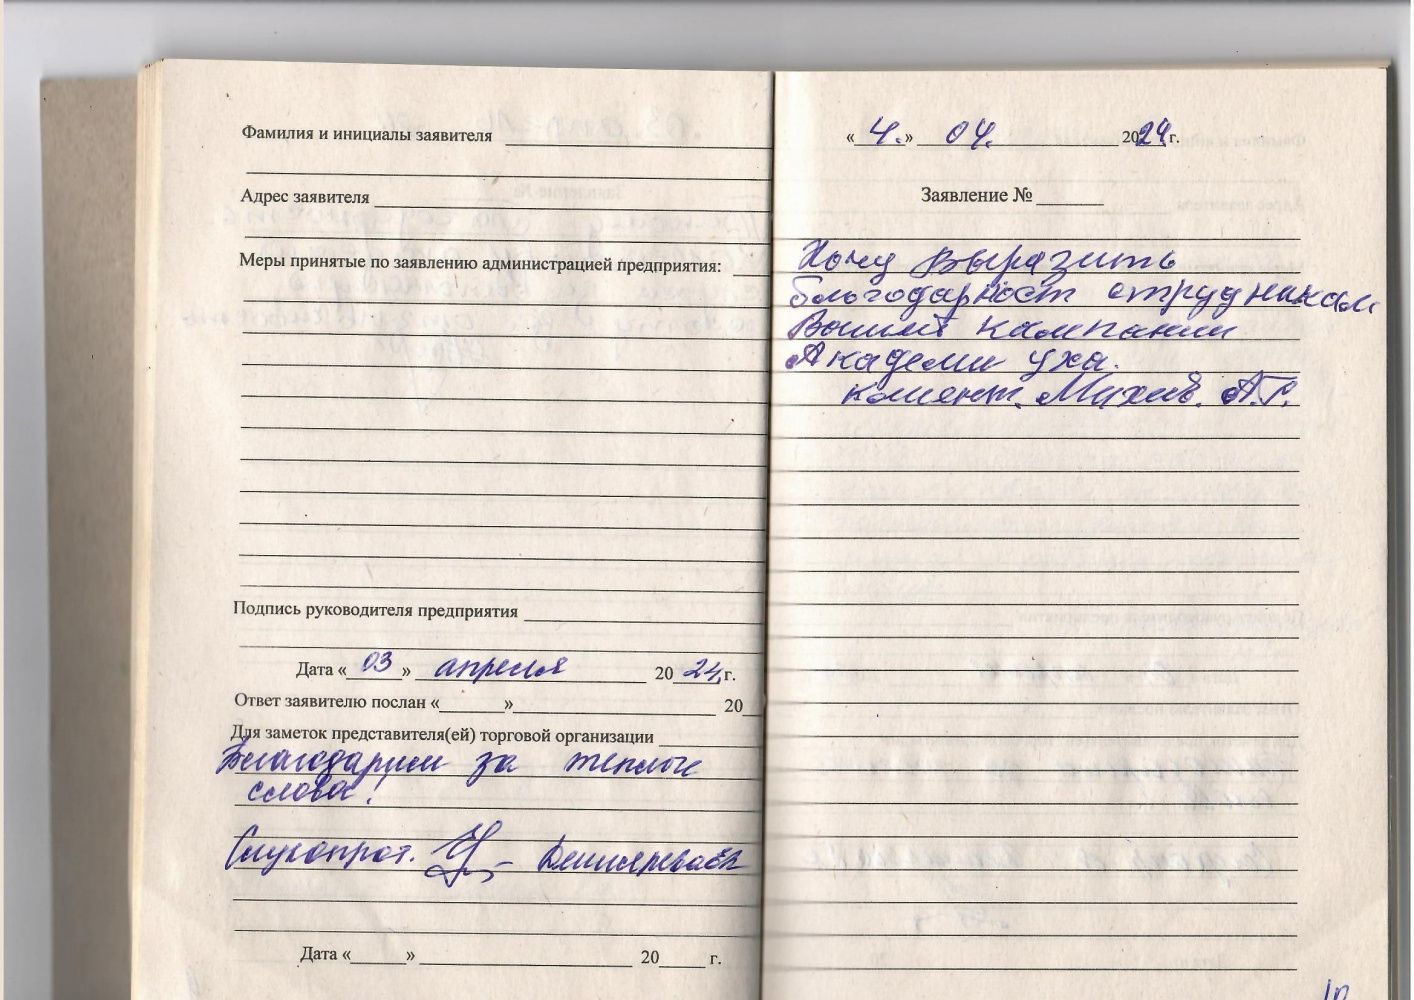 Фамилия и инициалы заявителя
Адрес заявителя
Меры принятые по заявлению администрацией предприятия:
Подпись руководителя предприятия
Дата «03» апреля 2024 г.
Ответ заявителю послан « » 20
Для заметок представителя(ей) торговой организации
Благодарим за теплые
слова!
Слухопрот.
Дата « » 20 г.
«4.» 04. 2024 г.
Заявление №
Хочу выразить
благодарност струдникам
Вашей кампании
Академи уха.
клиент. А.Г.